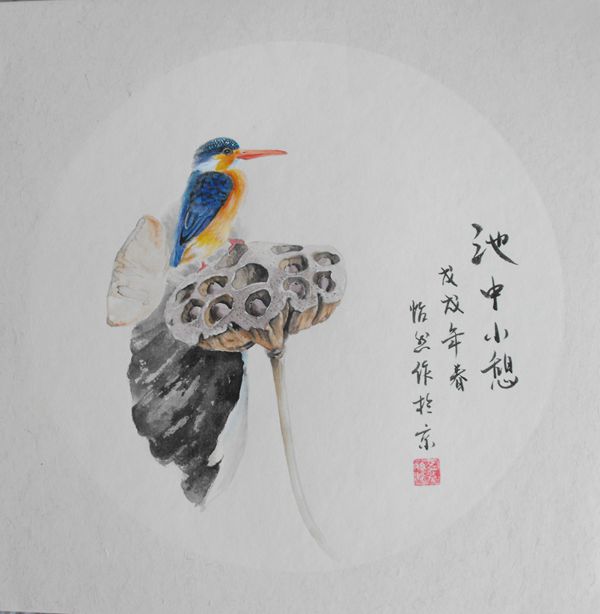 池中小憩
戊戌年春
怡然作於京